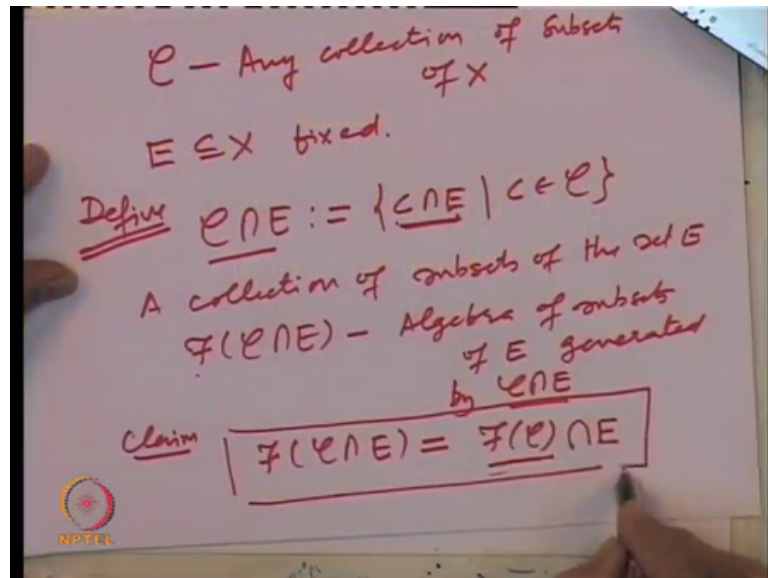 𝒞 – Any collection of subsets
of X
E ⊆ X fixed.
Define 𝒞∩E := {C∩E | C ∈ 𝒞}
A collection of subsets of the set E
𝓕(𝒞∩E) – Algebra of subsets
of E generated
by 𝒞∩E
Claim 𝓕(𝒞∩E) = 𝓕(𝒞)∩E
NPTEL